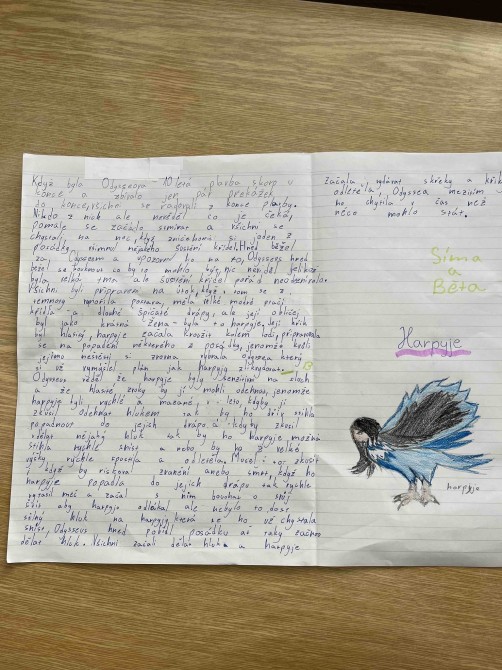 Když byla Odysseova 10letá plavba skoro u
konce a zbývalo jen pár překážek
do konce, všichni se radovali z konce plavby.
Nikdo z nich ale nevěděl co je čeká,
pomalu se začalo stmívat a všichni se
chystali na noc, když zničehonic si jeden z
posádky všiml nějakého šustění křídel. Hned běžel
za Odysseem a upozornil ho na to, Odysseus hned
běžel se podívat co by to mohlo být, nic neviděl jelikož
byla velká tma ale šustění křídel pořád neodeznívalo.
Všichni byli připraveni na útok, když v tom se z
temnoty vynořila postava, měla velké modré ptačí
křídla a dlouhé špičaté drápy, ale její obličej
byl jako krásná žena - byla to harpyje, její křik
byl hlasitý, harpyje začala kroužit kolem lodi, připravovala
se na popadení některého z posádky, jenomže kvůli
jejímu neštěstí si zrovna vybrala Odyssea který
si už vymýslel plán jak harpyji zlikvidovat.
Odysseus věděl, že harpyje byly senzitivní na zvuk
a že hlasité zvuky by je mohli odehnat, jenomže
harpyje byli rychlé a mazané, v letu, kdyby
zkusil odehnat hlukem tak by ho
popadnout do jejich drápů a kdyby zkusil
udělat nějaký hluk tak by ho harpyje možná
stihla rychle sníst a nebo by ho z velké
výšky rychle spustila a odletěla. Musel to zkusit
i když by riskoval zranění aneb smrt, když ho
harpyje popadla do jejich drápů tak rychle
vytasil meč a začal s ním bouchat o svůj
štít aby harpyje odlétla ale nebylo to dost
silný hluk na harpyji, která se ho už chystala
sníst, Odysseus hned pobídl posádku ať taky začnou
dělat hluk. Všichni začali dělat hluk a harpyje
začala vydávat skřeky a křik
odletěla, Odyssea mezitím
ho chytila v čas než
něco mohlo stát.
Síma
a
Běta
Harpyje
harpyje